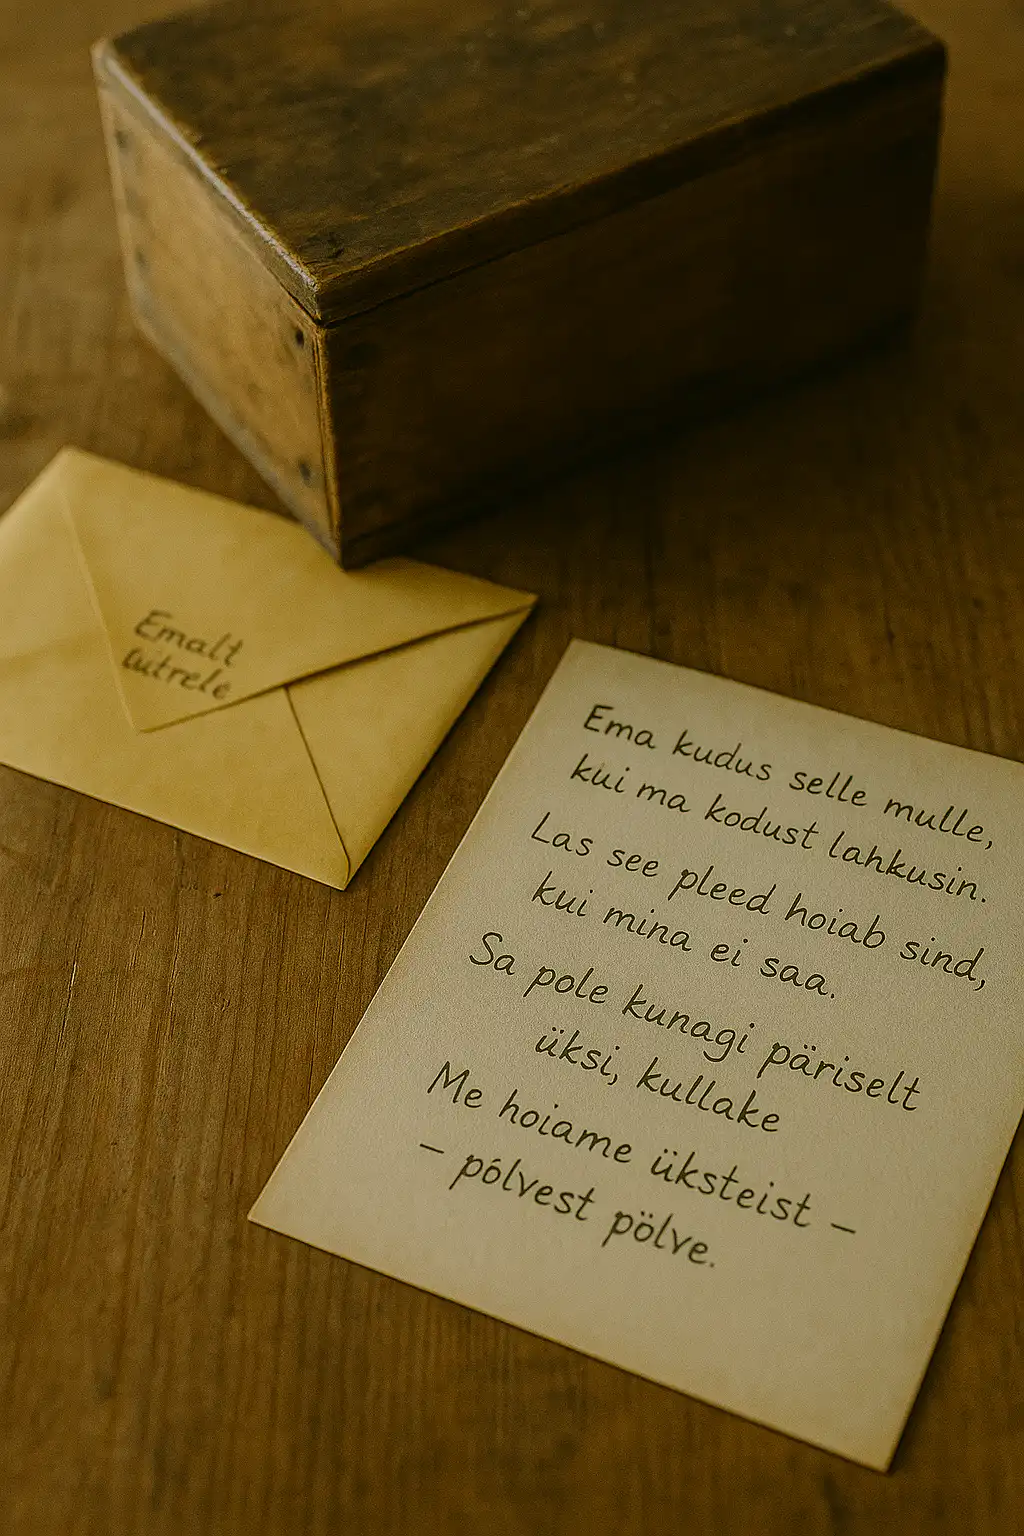 Emalt
Ema kudus selle mulle,
kui ma kodust lahkusin.
Las see pleed hoiab sind,
kui mina ei saa.
Sa pole kunagi päriselt
üksi, kullake
Me hoiame üksteist –
– pólvest pölve.